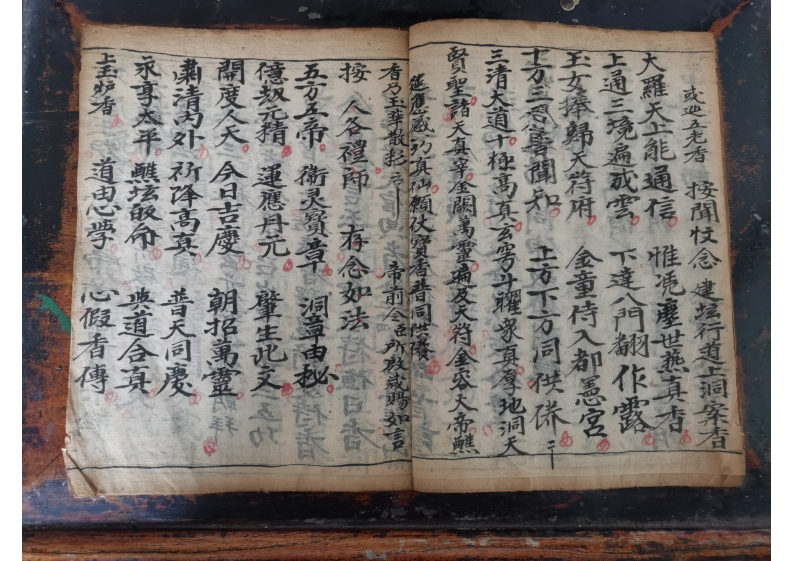 或巡五老香 按聞忟念 建坛行道上洞案香
大羅天上能通信 惟凴塵世爇真香
上通三境遍成雲 下達八門翻作露
玉女捧歸天符府 金童侍入都憲宮
十方三界喜聞知 上方下方同供养
三清大道十極高真玄穹斗曜衆真厚地洞天
賢聖諸天真宰金闕萬靈遍及天将金容大帝醮
筵應感列真仙願伏寶香普同供養
香乃玉華散彩 帝前令臣所啟咸賜如言
按 人各禮師 存念如法
五方五帝 衛灵寶章 洞章由秘
億劫元精 運應丹元 肇生此文
開度人天 今日吉慶 朝招萬靈
肅清内外 祈降高真 普天同慶
永享太平 醮坛啟命 與道合真
上玉炉香 道由心學 心假香傳